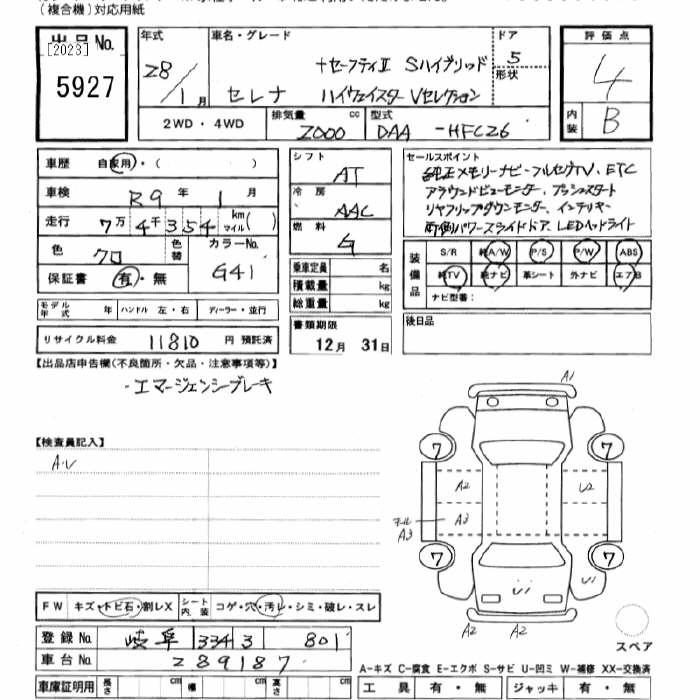 (複合機)対応用紙
出品No.
[2023]
5927
年式
28/1月
車名・グレード
+セーフティII Sハイブリッド
セレナ ハイウェイスターVセレクション
ドア
5
形状
評価点
4
内装 B
2WD・4WD
排気量 cc
2000
型式
DAA -HFC26
車歴 自家用・( )
車検 R9年 1月
走行 7万4千354 km マイル( )
色 クロ
色替
カラーNo.
G41
保証書 有・無
シフト
AT
冷房
AAC
燃料
G
乗車定員 名
積載量 kg
総重量 kg
セールスポイント
純正メモリーナビ・フルセグTV、ETC
アラウンドビューモニター、プッシュスタート
リヤフリップダウンモニター、インテリキー
両側パワースライドドア、LEDヘッドライト
装備品
S/R 純A/W P/S P/W ABS
純TV 純ナビ 革シート 外ナビ エアB
ナビ型番:
モデル年式 年 ハンドル 左・右 ディーラー・並行
リサイクル料金 11810 円 預託済
書類期限
12月 31日
後日品
【出品店申告欄(不良箇所・欠品・注意事項等)】
・エマージェンシーブレーキ
【検査員記入】
A・U
A1
7 7
A2 U2
A3
A3
7 7
U1 U1
A2 A2
スペア
FW キズ・トビ石・割レX シート内装 コゲ・穴・汚レ・シミ・破レ・スレ
登録No. 岐阜 334 3 801
車台No. 289187
車庫証明用 長さ cm 幅 cm 高さ cm
A-キズ C-腐食 E-エクボ S-サビ U-凹ミ W-補修 XX-交換済
工具 有・無 ジャッキ 有・無